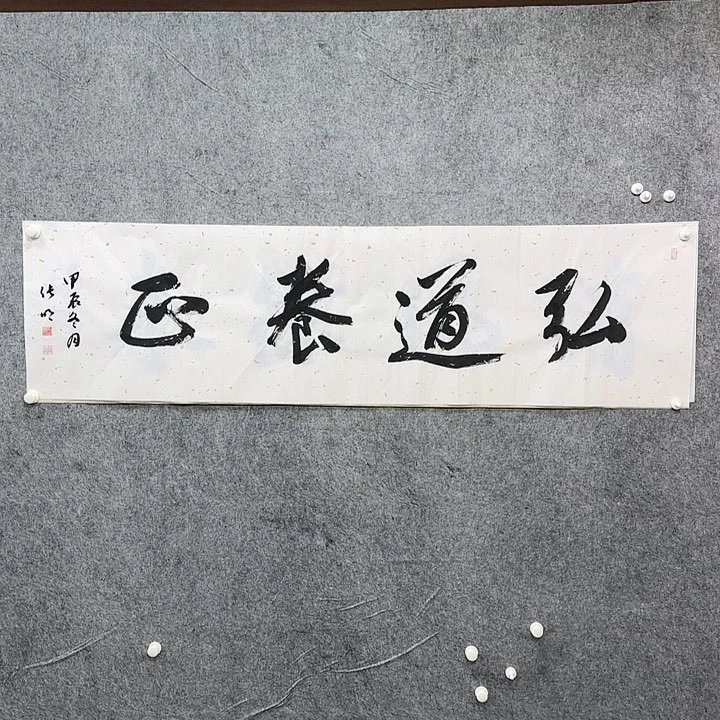 弘道養正
甲辰冬月
张明